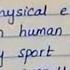 hysical e
n human
y sport